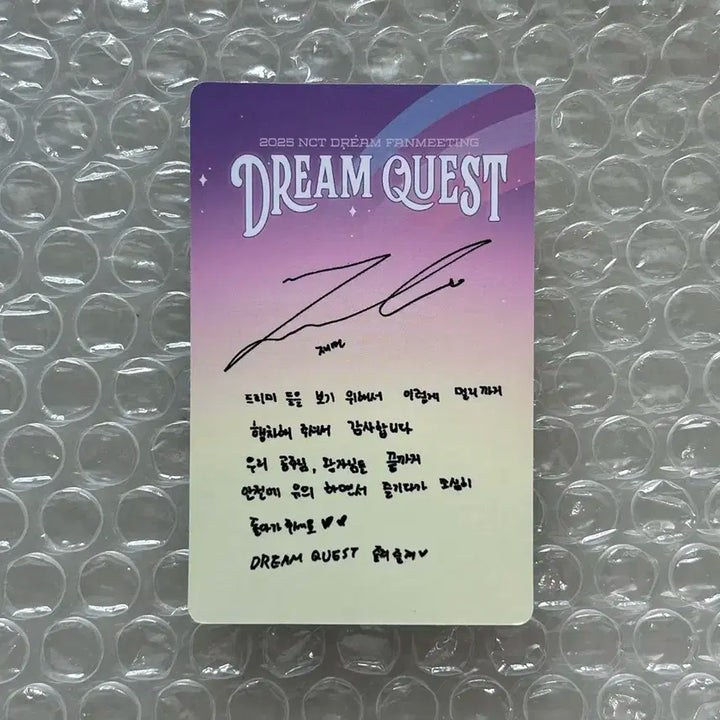 2025 NCT DREAM FANMEETING
DREAM QUEST
재민
드리미 들을 보기 위해서 이렇게 멀리까지
행차해 주셔서 감사합니다
우리 공주님, 왕자님들 끝까지
안전에 유의 하면서 즐기다가 조심히
돌아가 주세요 ♥♥
DREAM QUEST